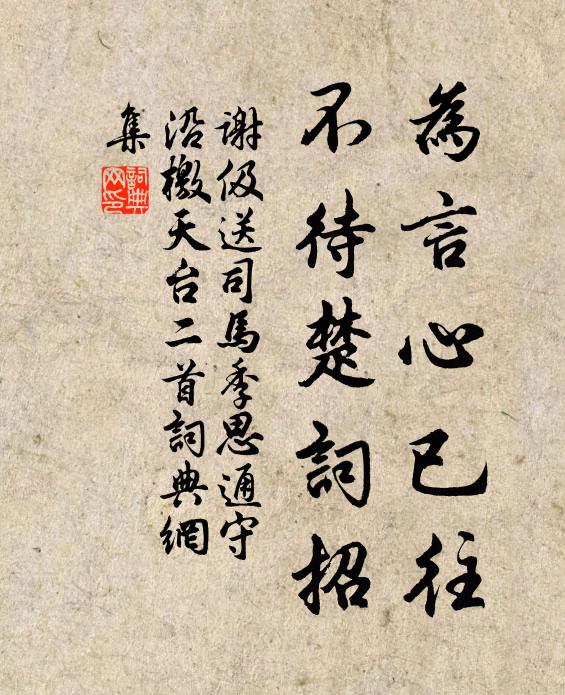 為言心已往
不待楚詞招
謝伋送司馬季思通守
沿檄天台二首詞典網
集
詞典
网印